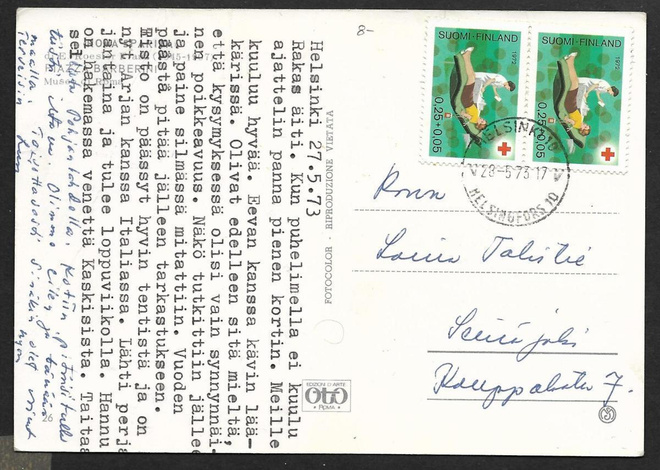 8-
Helsinki 27.5.73
Rakas äiti. Kun puhelimella ei kuulu
ajattelin panna pienen kortin. Meille
kuuluu hyvää. Eevan kanssa kävin lää-
kärissä. Olivat edelleen sitä mieltä,
että kysymyksessä olisi vain synnynnäi-
nen poikkeavuus. Näkö tutkittiin jällee
ja paine silmässä mitattiin. Vuoden
päästä pitää jälleen tarkastukseen.
Risto on päässyt hyvin tentistä ja on
nyt Arjan kanssa Italiassa. Lähti perja
jantaina ja tulee loppuviikolla. Hannu
on hakemassa venettä Kaskisista. Taitaa
sel
Pohjanlahdella. Kotiin pitäisi tulla
Olimme eilen ja tänään
maalla. Toivottavasti Sinäkin olet voinut
hyvin
Terveisin
26
FOTOCOLOR - RIPRODUZIONE VIETATA
EDIZIONI D'ARTE
OTO
ROMA
SUOMI-FINLAND
1972
0,25+0,05
SUOMI-FINLAND
1972
0,25+0,05
HELSINKI 10
28-5.73 17
HELSINGFORS 10
Rouva
Seinäjoki
Kauppakatu 7.